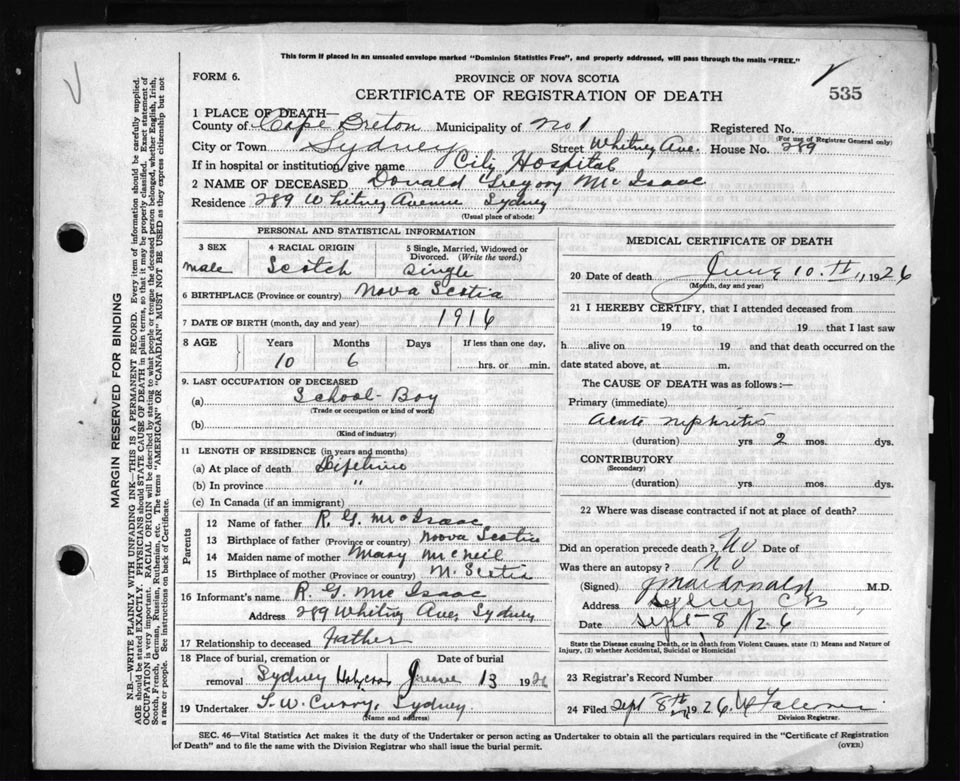 This form if placed in an unsealed envelope marked "Dominion Statistics Free", and properly addressed, will pass through the mails "FREE."
FORM 6.
PROVINCE OF NOVA SCOTIA
CERTIFICATE OF REGISTRATION OF DEATH
535
1 PLACE OF DEATH—
County of Cape Breton Municipality of No 1 Registered No.
(For use of Registrar General only)
City or Town Sydney Street Whitney Ave. House No. 289
If in hospital or institution, give name City Hospital
2 NAME OF DECEASED Donald Gregory McIsaac
Residence 289 Whitney Avenue Sydney
(Usual place of abode)
PERSONAL AND STATISTICAL INFORMATION
3 SEX 4 RACIAL ORIGIN 5 Single, Married, Widowed or Divorced. (Write the word.)
male Scotch Single
6 BIRTHPLACE (Province or country) Nova Scotia
7 DATE OF BIRTH (month, day and year) 1916
8 AGE Years Months Days If less than one day,
10 6 hrs. or min.
9. LAST OCCUPATION OF DECEASED
(a) School-Boy
(Trade or occupation or kind of work)
(b)
(Kind of industry)
11 LENGTH OF RESIDENCE (in years and months)
(a) At place of death Lifetime
(b) In province "
(c) In Canada (if an immigrant)
Parents
12 Name of father R. G. McIsaac
13 Birthplace of father (Province or country) Noova Scotia
14 Maiden name of mother Mary McNeil
15 Birthplace of mother (Province or country) N. Scotia
16 Informant's name R. G. McIsaac
Address 289 Whitney Ave, Sydney,
17 Relationship to deceased Father
18 Place of burial, cremation or removal Date of burial
Sydney June 13 1926
19 Undertaker T. W. Curry, Sydney
(Name and address)
MEDICAL CERTIFICATE OF DEATH
20 Date of death June 10th, 1926
(Month, day and year)
21 I HEREBY CERTIFY, that I attended deceased from
19 to 19 that I last saw
h alive on 19 and that death occurred on the
date stated above, at m.
The CAUSE OF DEATH was as follows:—
Primary (immediate)
Acute nephritis
(duration) yrs 2 mos. dys.
CONTRIBUTORY
(Secondary)
(duration) yrs. mos. dys.
22 Where was disease contracted if not at place of death?
Did an operation precede death? No Date of
Was there an autopsy? No
(Signed) J Macdonald M.D.
Address Sydney CB
Date Sept-8/26
State the Disease causing Death, or in death from Violent Causes, state (1) Means and Nature of Injury, (2) whether Accidental, Suicidal or Homicidal
23 Registrar's Record Number
24 Filed Sept 8th 1926.
Division Registrar.
SEC. 46—Vital Statistics Act makes it the duty of the Undertaker or person acting as Undertaker to obtain all the particulars required in the "Certificate of Registration
of Death" and to file the same with the Division Registrar who shall issue the burial permit.
(OVER)
MARGIN RESERVED FOR BINDING
N.B.—WRITE PLAINLY WITH UNFADING INK—THIS IS A PERMANENT RECORD. Every item of information should be carefully supplied.
AGE should be stated EXACTLY. PHYSICIANS should STATE CAUSE OF DEATH in plain terms, so that it may be properly classified. Exact statement of
OCCUPATION is very important. RACIAL ORIGIN will be described by stating to what people or tongue the deceased person belonged, whether English, Irish,
Scotch, French, German, Russian, Ruthenian, etc. The terms "AMERICAN" OR "CANADIAN" MUST NOT BE USED as they express citizenship but not
a race or people. See instructions on back of Certificate.